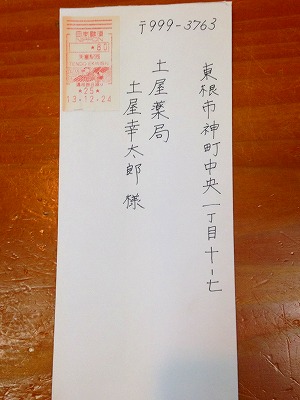 〒999-3763
東根市神町中央一丁目十-七
土屋薬局
土屋幸太郎様
日本郵便
80
13.12.24